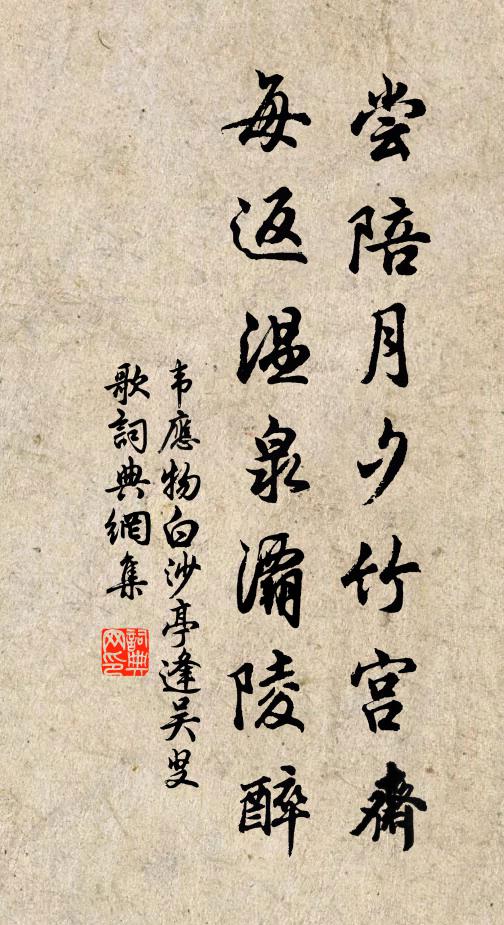 尝陪月夕竹宫齋
每返温泉灞陵醉
韦應物白沙亭逢吴叟
歌詞典網集
詞典
网印